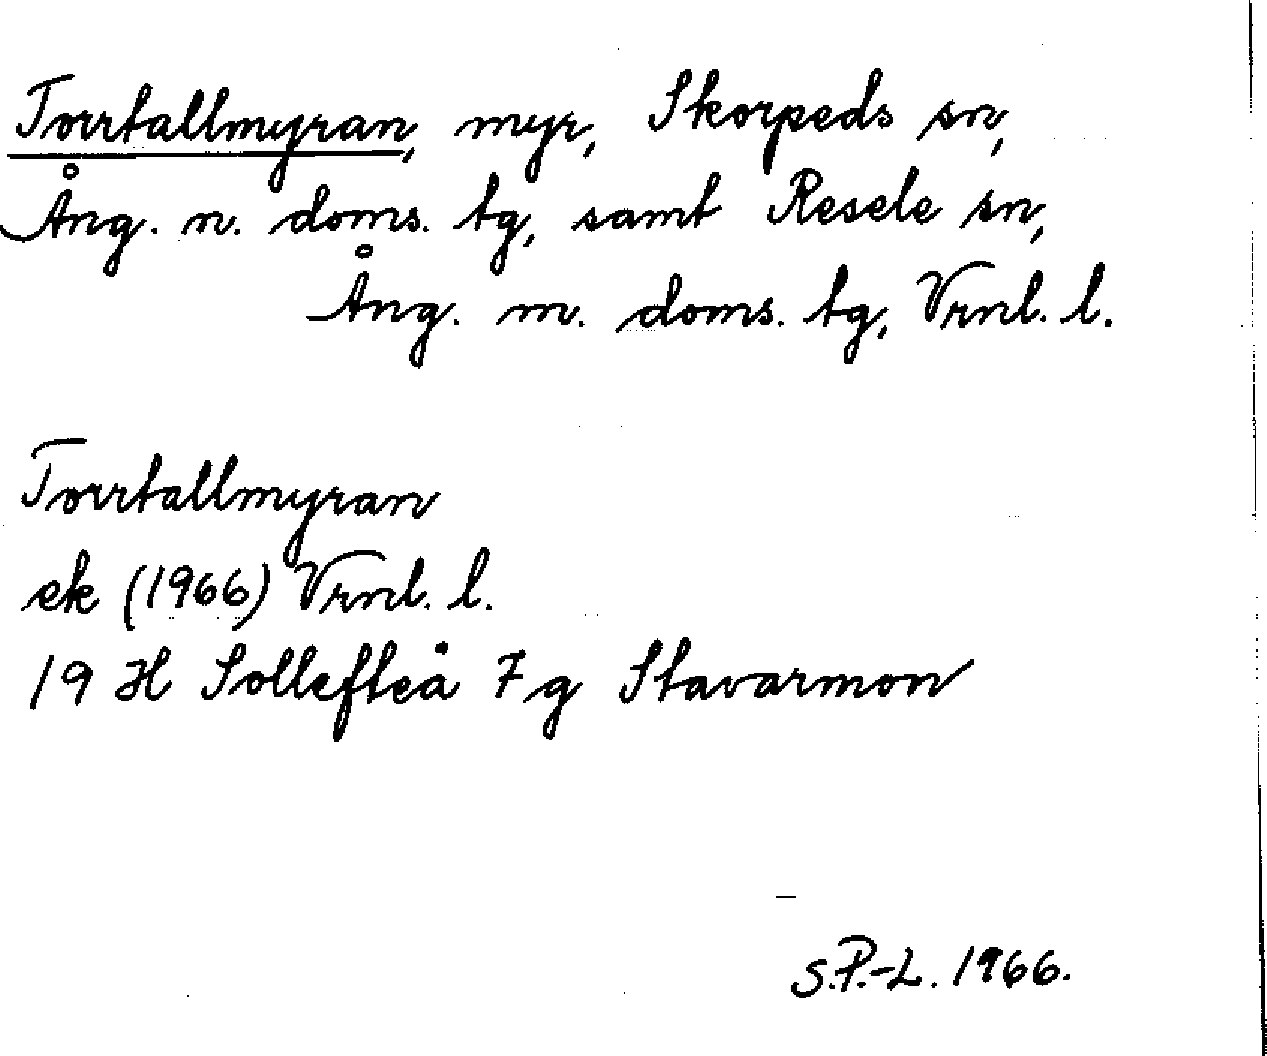 Torrtallmyran, myr, Skorpeds sn,
Ång. n. doms. tg, samt Resele sn,
Ång. m. doms. tg, Vrnl. l.
Torrtallmyran
ek (1966) Vrnl. l.
19 H Sollefteå 7 g Stavarmon
S.P.-L. 1966.